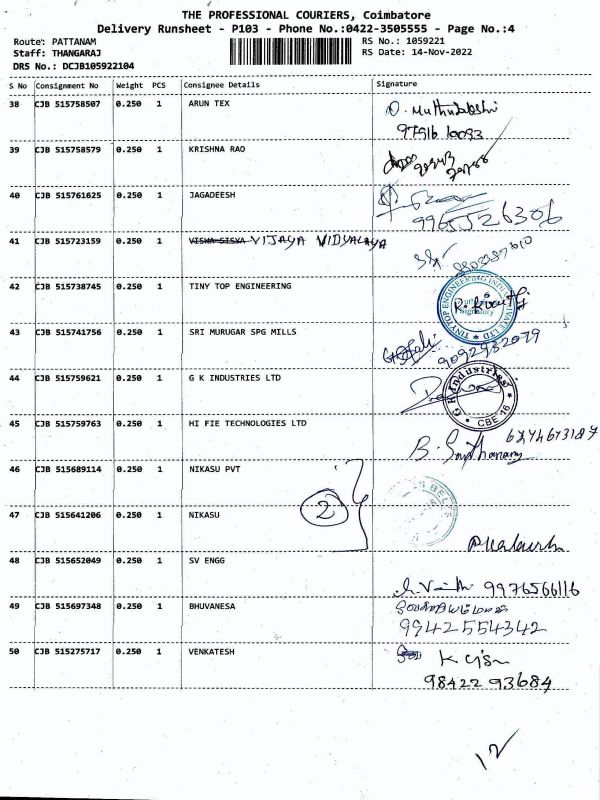 THE PROFESSIONAL COURIERS, Coimbatore
Delivery Runsheet - P103 - Phone No.:0422-3505555 - Page No.:4
Route: PATTANAM RS No.: 1059221
Staff: THANGARAJ RS Date: 14-Nov-2022
DRS No.: DCJB105922104
S No Consignment No Weight PCS Consignee Details Signature
38 CJB 515758507 0.250 1 ARUN TEX
39 CJB 515758579 0.250 1 KRISHNA RAO
40 CJB 515761625 0.250 1 JAGADEESH
9965526306
41 CJB 515723159 0.250 1 VISHA SISYA VIJAYA VIDYALAYA
42 CJB 515738745 0.250 1 TINY TOP ENGINEERING
43 CJB 515741756 0.250 1 SRI MURUGAR SPG MILLS
9092932079
44 CJB 515759621 0.250 1 G K INDUSTRIES LTD
G K Industries CBE 16
45 CJB 515759763 0.250 1 HI FIE TECHNOLOGIES LTD
46 CJB 515689114 0.250 1 NIKASU PVT
2
47 CJB 515641206 0.250 1 NIKASU
48 CJB 515652049 0.250 1 SV ENGG
9976566116
49 CJB 515697348 0.250 1 BHUVANESA
9942554342
50 CJB 515275717 0.250 1 VENKATESH
98422 93684
12